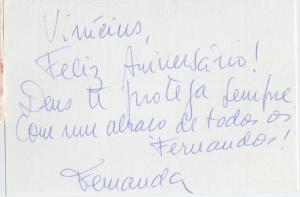 Vinícius,
Feliz Aniversário!
Deus te proteja sempre
Com um abraço de todos os
Fernandos!
Fernanda